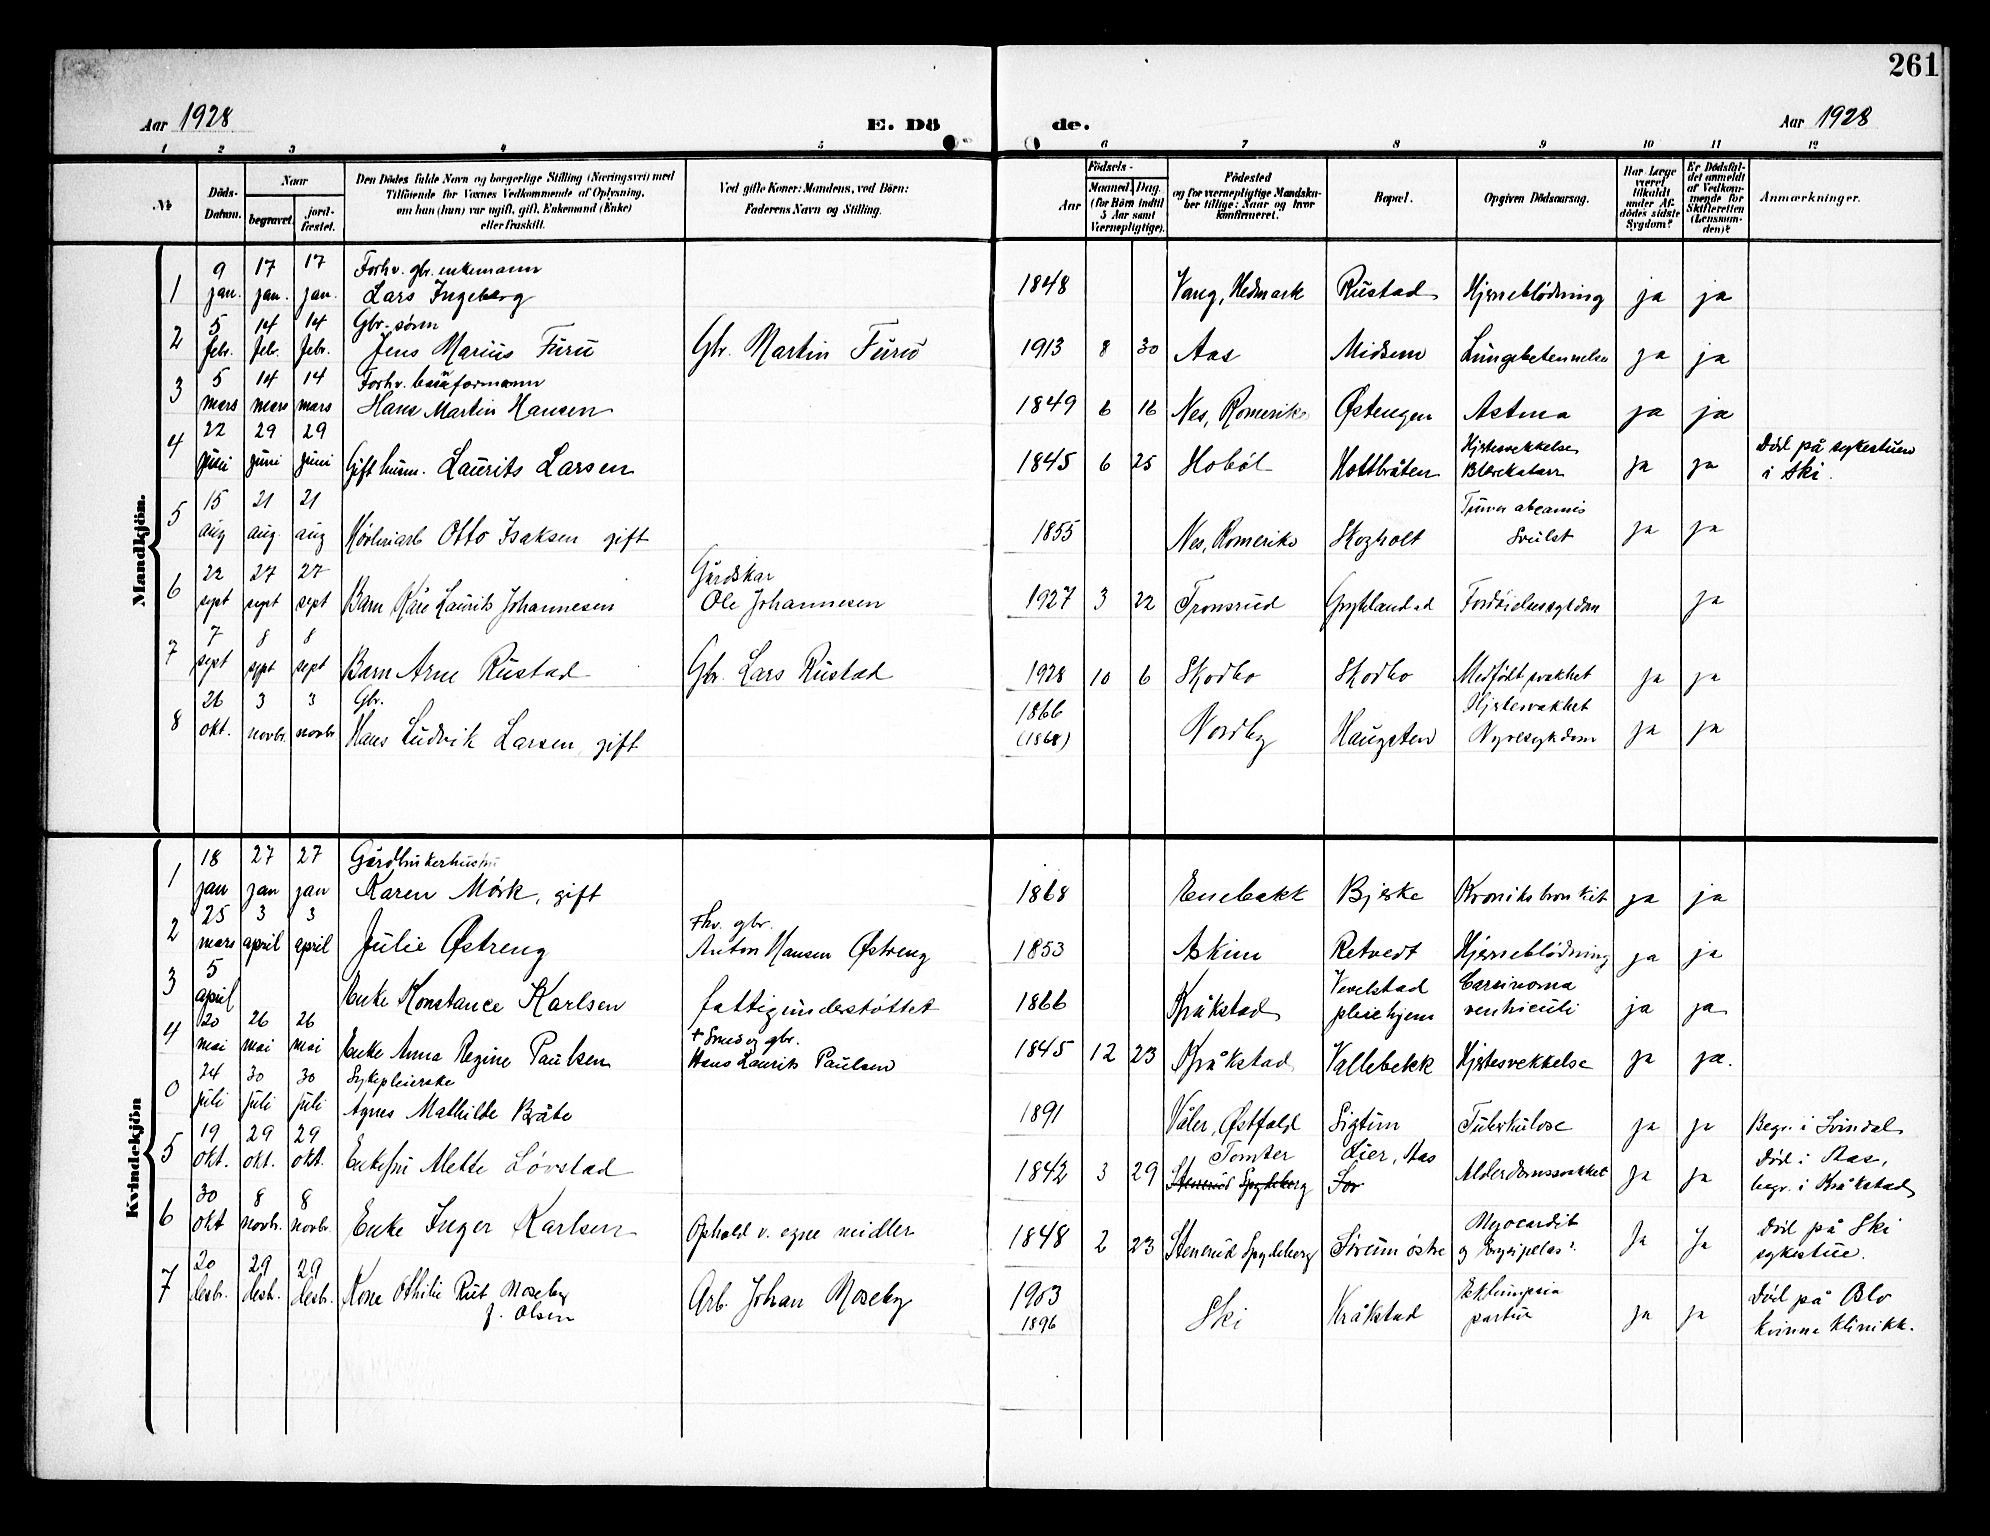 261
Aar 1928
E. Dö
de.
Aar 1928
1 2 3 4 5 6 7 8 9 10 11 12
№
Döds-Datum.
Naar
begravet.
jord-fæstet.
Den Dödes fulde Navn og borgerlige Stilling (Næringsvei) med
Tilföiende for Vaxnes Vedkommende af Oplysning,
om han (hun) var ugift, gift, Enkemand (Enke)
eller fraskilt.
Ved gifte Koner: Mandens, ved Börn:
Faderens Navn og Stilling.
Födsels-
Aar
Maaned. Dag.
(for Börn indtil
5 Aar samt
Værnepligtige).
Födested
og for værnepligtige Mandska-
ber tillige: Naar og hvor
konfirmeret.
Bopæl.
Opgiven Dödsaarsag.
Har Læge
været
tilkaldt
under Af-
dödes sidste
Sygdom?
Er Dödsfal-
det anmeldt
af Vedkom-
mende for
Skifteretten
(Lensman-
den)?
Anmærkninger.
Mandkjön.
1 9 jan. 17 jan. 17 jan. Forhv. gbr. enkemann
Lars Ingeberg 1848 Vang, Hedmark Rustad Hjerneblödning ja ja
2 5 febr. 14 feb. 14 febr. Gbr. sönn
Jens Marius Furu Gbr. Martin Furu 1913 8 30 Aas Midsem Lungebetennelse ja ja
3 5 mars 14 mars 14 mars Forhv. baneformann
Hans Martin Hansen 1849 6 16 Nes, Romerike Østengen Astma ja ja
4 22 juni 29 juni 29 juni Gift husm. Laurits Larsen 1845 6 25 Hobøl Hottbråten Hjertesvekkelse
Blærekatarr ja ja Död på sykestuen
i Ski.
5 15 aug 21 aug. 21 aug Otto Isaksen gift 1855 Nes, Romerike Skogholt Tumor
Svulst ja ja
6 22 sept 27 sept 27 sept Barn Kåre Laurits Johannesen Gårdskar
Ole Johannesen 1927 3 22 Tronsrud ja
7 7 sept 8 sept 8 sept Barn Arne Rustad Gbr. Lars Rustad 1928 10 6 Skodbo Skodbo Medfödt svakhet ja ja
8 26 okt. 3 novbr. 3 novbr Gbr.
Hans Ludvik Larsen, gift 1866
(1868) Nordby Haugsten Hjertesvakhet
Nyresykdom ja ja
Kvindekjön
1 18 jan 27 jan 27 jan Gårdbrukerhustru
Karen Mörk, gift 1868 Enebakk Bjerke Kronikbronkit ja ja
2 25 mars 3 april 3 april Julie Østreng Fhv. gbr.
Anton Hansen Østreng 1853 Askim Retvedt Hjerneblödning ja ja
3 5 april Enke Konstance Karlsen fattigunderstøttet 1866 Kråkstad Vevelstad
pleiehjem Carcinoma
ventriculi ja ja
4 20 mai 26 mai 26 mai Enke Anna Regine Paulsen + Smed og gbr.
Hans Laurits Paulsen 1845 12 23 Kråkstad Vallebekk Hjertesvekkelse ja ja.
0 24 juli 30 juli 30 juli Sykepleierske
Agnes Mathilde Bråte 1891 Våler, Østfold Sigtun Tuberkulose ja ja Begr. i Svindal
5 19 okt. 29 okt. 29 okt. Enkefru Mette Lövstad 1842 3 29 Tomter
Stenerud Spydeberg Lier, Aas
Alderdomssvakhet ja ja Död i Aas,
begr. i Kråkstad
6 30 okt 8 novbr. 8 novbr. Enke Inger Karlsen Ophold v. egne midler 1848 2 23 Stenerud Spydeberg Sörum östre Myocardit
og Erysipelas ja ja Död på Ski
sykestue.
7 20 desbr. 29 desb. 29 desbr. Kone Othilie Rut Moseby
f. Olsen Arb. Johan Moseby 1903
1896 Ski Kråkstad Eklampsia
partus ja ja Död på Oslo
kvinneklinikk.